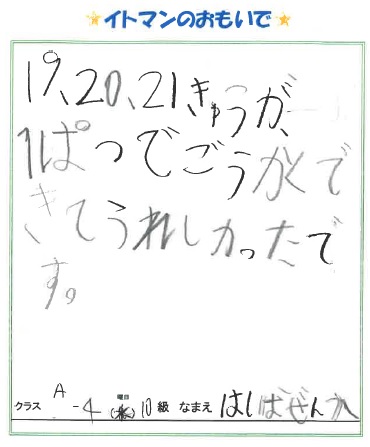 イトマンのおもいで
19、20、21きゅうが、
1ぱつでごうかくで
きてうれしかったで
す。
クラス A-4 曜日(水) 10級 なまえ はしばぜんか